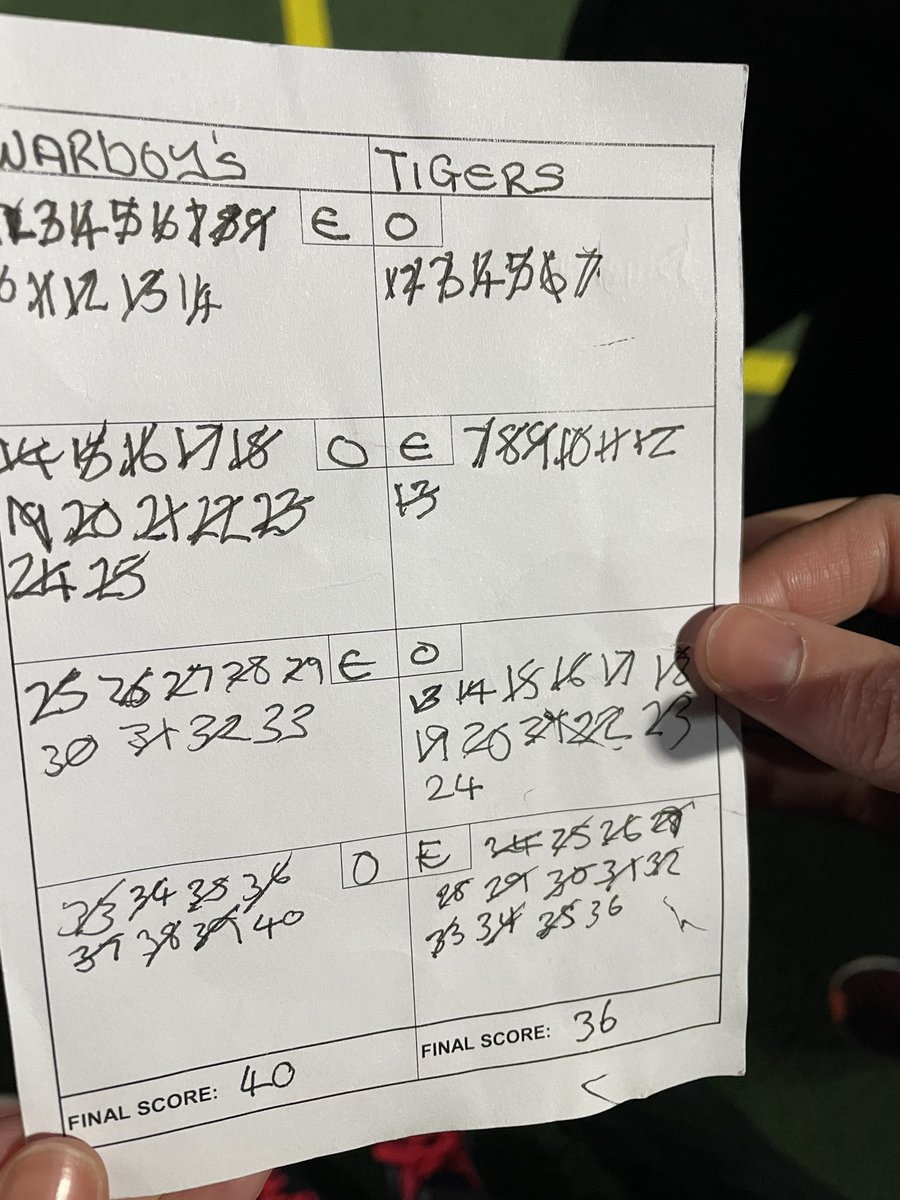 WARboy's
TIGERS
1 2 3 4 5 6 7 8 9
E
O
11 12 13 14
1 2 3 4 5 6 7
14 15 16 17 18
O
E
7 8 9 10 11 12
19 20 21 22 23
13
24 25
25 26 27 28 29
E
O
13 14 15 16 17 18
30 31 32 33
19 20 21 22 23
24
33 34 35 36
O
E
24 25 26 27
37 38 39 40
28 29 30 31 32
33 34 35 36
FINAL SCORE: 40
FINAL SCORE: 36